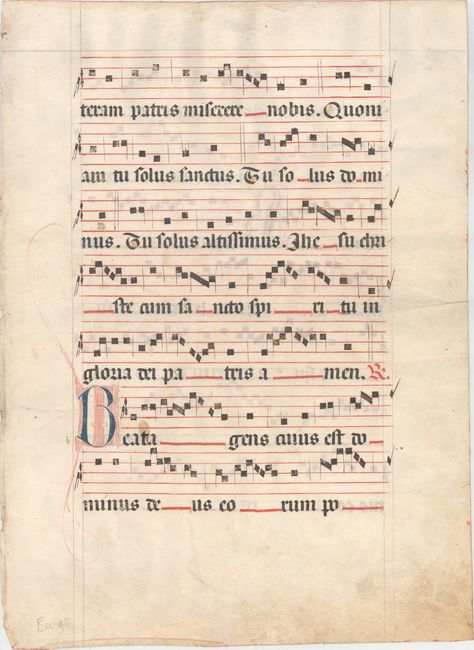 teram patris miserere nobis. Quoni
am tu solus sanctus. Tu so lus do mi
nus. Tu solus altissimus. Jhe su chri
ste cum sa ncto spi ri tu in
gloria dei pa tris a men. R.
Beata gens cuius est do
minus de us eo rum po